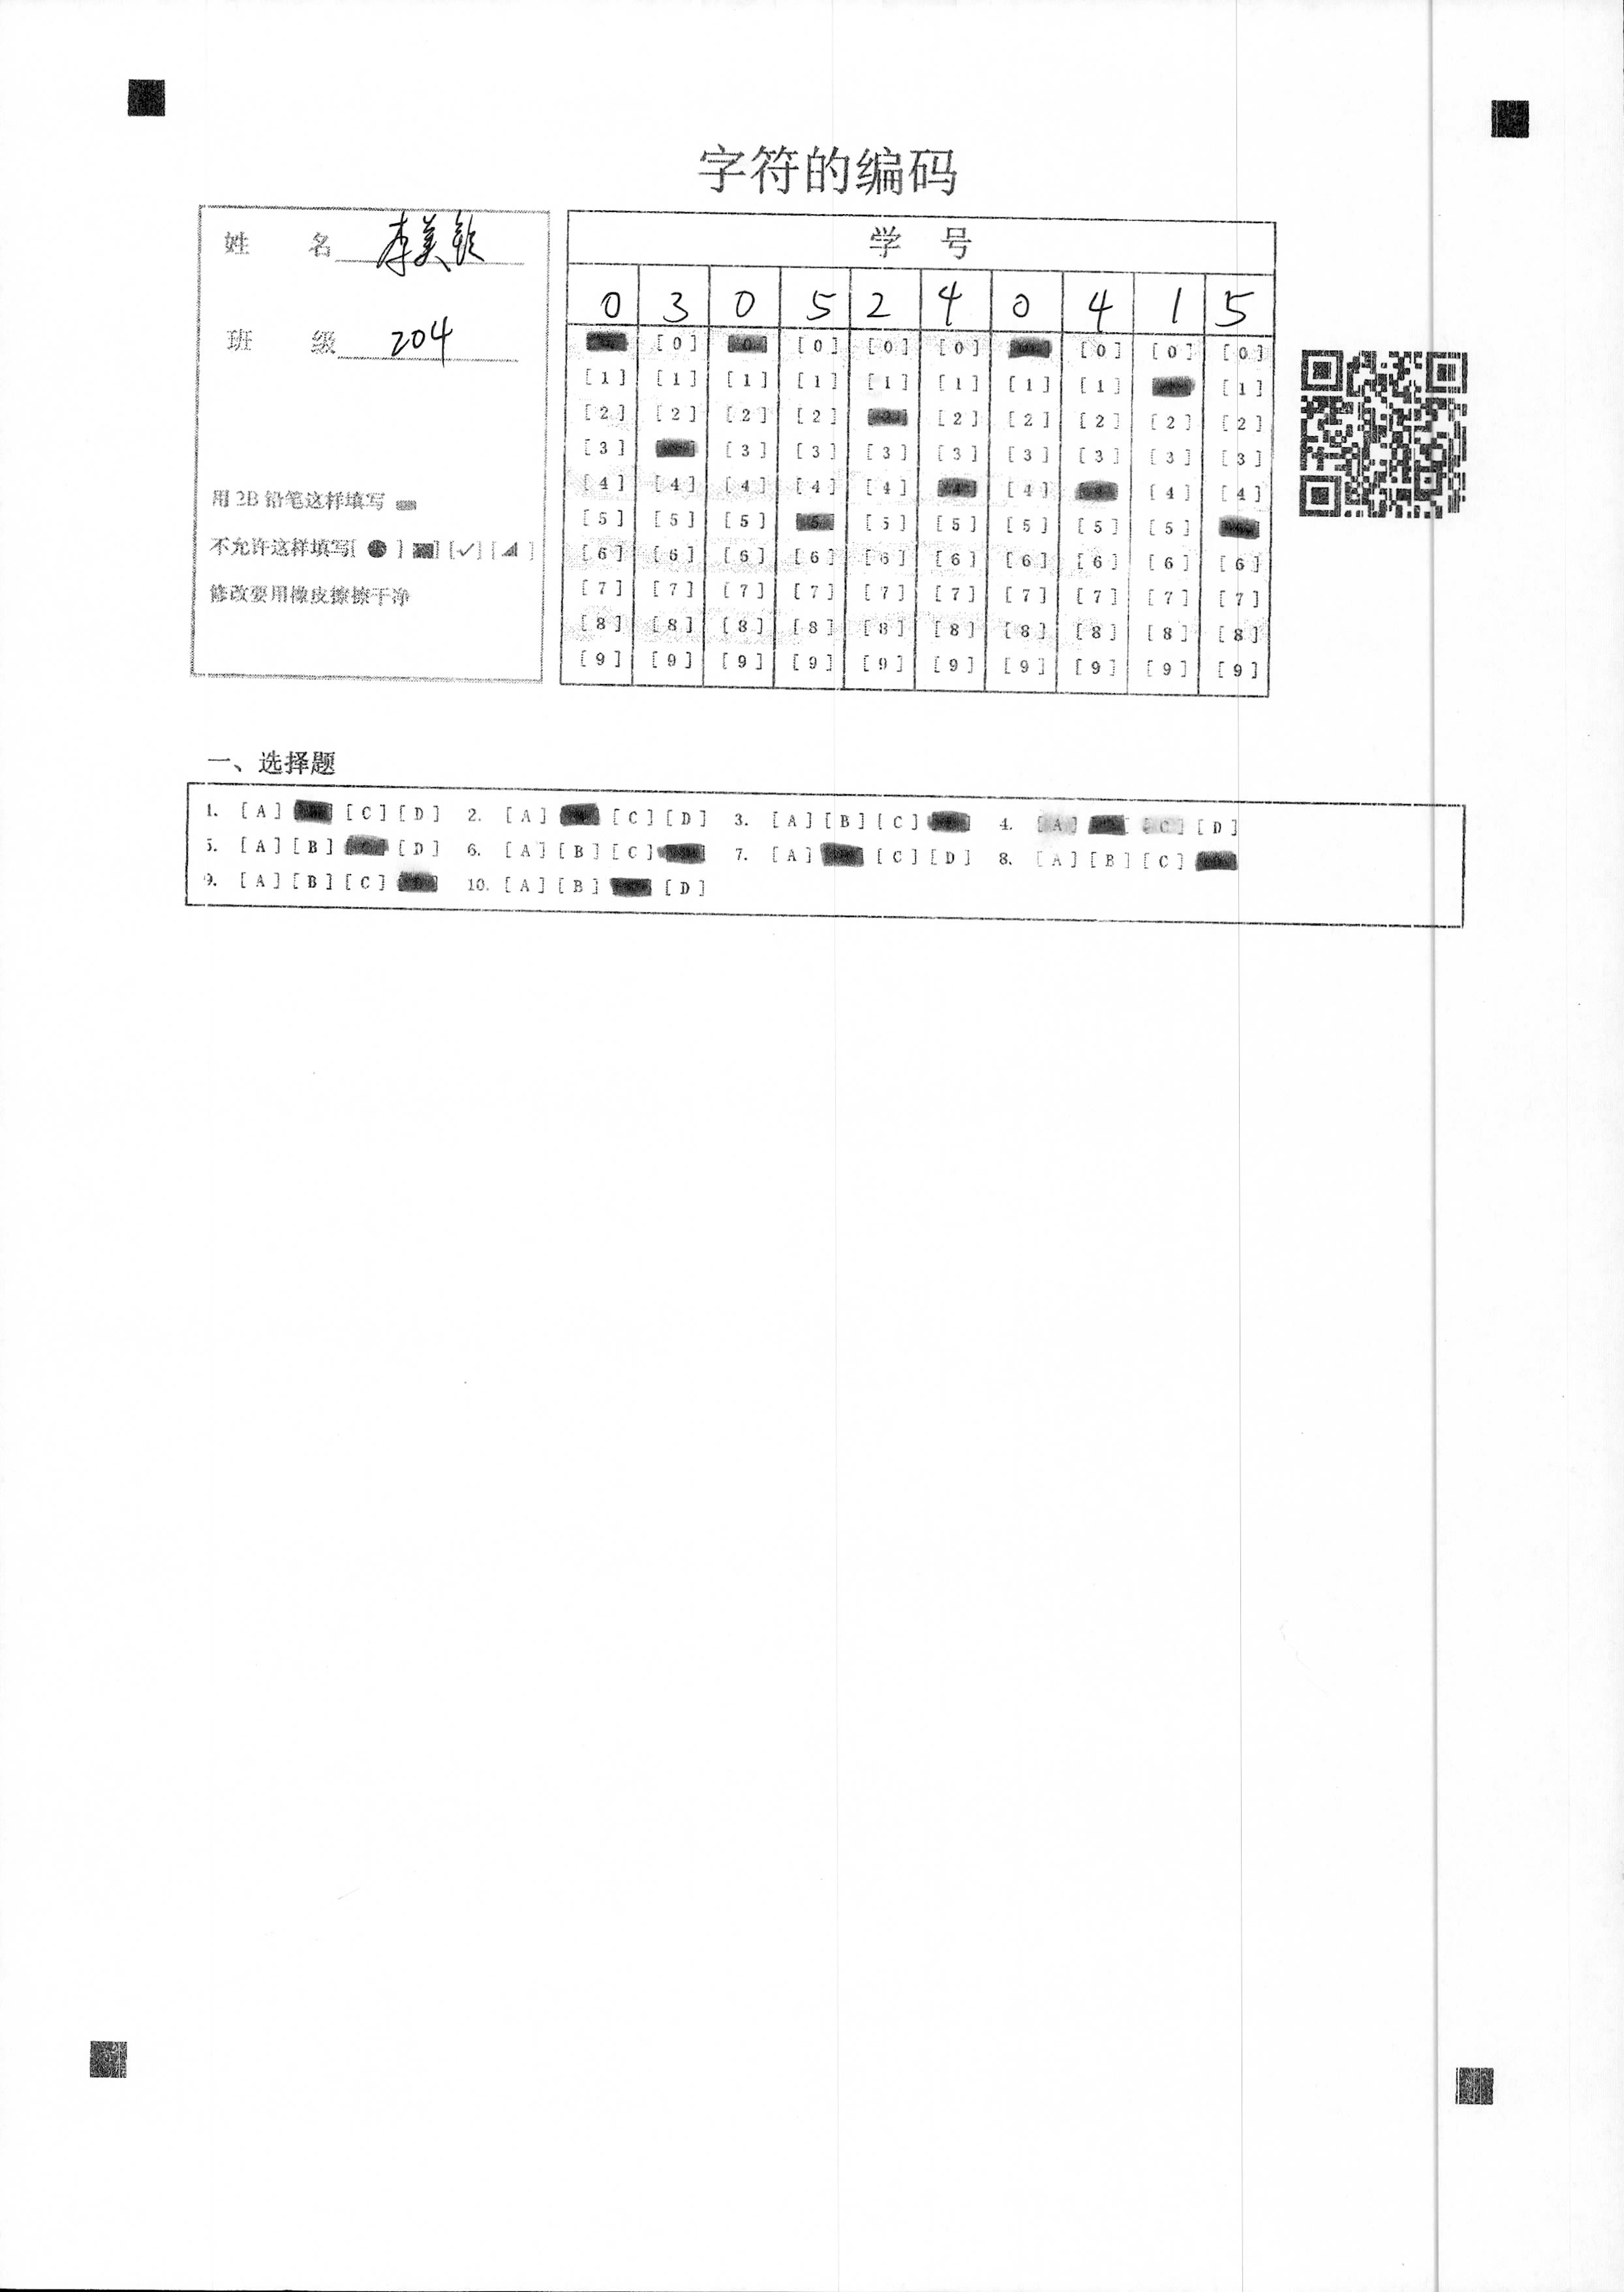 字符的编码
姓 名 李美
班 级 204
用 2B 铅笔这样填写
不允许这样填写[ ● ] [■] [✓] [◢ ]
修改要用橡皮擦擦干净
学 号
0 3 0 5 2 4 0 4 1 5
[0] [0] [0] [0] [0] [0] [0]
[1] [1] [1] [1] [1] [1] [1] [1] [1]
[2] [2] [2] [2] [2] [2] [2] [2] [2]
[3] [3] [3] [3] [3] [3] [3] [3] [3]
[4] [4] [4] [4] [4] [4] [4] [4] [4] [4]
[5] [5] [5] [5] [5] [5] [5] [5] [5]
[6] [6] [6] [6] [6] [6] [6] [6] [6] [6]
[7] [7] [7] [7] [7] [7] [7] [7] [7] [7]
[8] [8] [8] [8] [8] [8] [8] [8] [8] [8]
[9] [9] [9] [9] [9] [9] [9] [9] [9] [9]
一、选择题
1. [A] [C] [D] 2. [A] [C] [D] 3. [A] [B] [C] 4. [A] [C] [D]
5. [A] [B] [D] 6. [A] [B] [C] 7. [A] [C] [D] 8. [A] [B] [C]
9. [A] [B] [C] 10. [A] [B] [D]